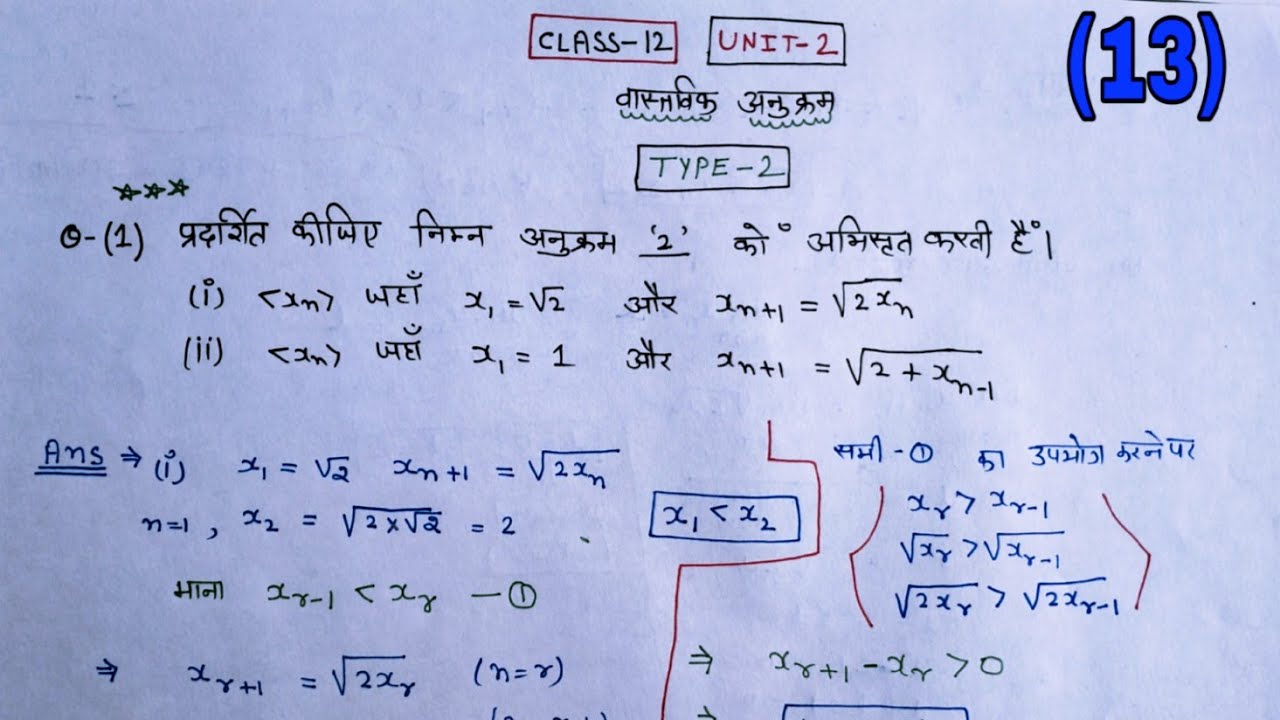 CLASS-12 UNIT-2 (13)
वास्तविक अनुक्रम
TYPE-2
Q-(1) प्रदर्शित कीजिए निम्न अनुक्रम '2' को अभिसृत करती हैं।
(i) <xₙ> जहाँ x₁ = √2 और xₙ₊₁ = √(2xₙ)
(ii) <xₙ> जहाँ x₁ = 1 और xₙ₊₁ = √(2 + xₙ₋₁)
Ans ⇒ (i) x₁ = √2 xₙ₊₁ = √(2xₙ)
n=1, x₂ = √(2×√2) = 2
x₁ < x₂
माना xᵣ₋₁ < xᵣ —①
⇒ xᵣ₊₁ = √(2xᵣ) (n=r)
समी-① का उपयोग करने पर
xᵣ > xᵣ₋₁
√xᵣ > √xᵣ₋₁
√(2xᵣ) > √(2xᵣ₋₁)
⇒ xᵣ₊₁ - xᵣ > 0
⇒